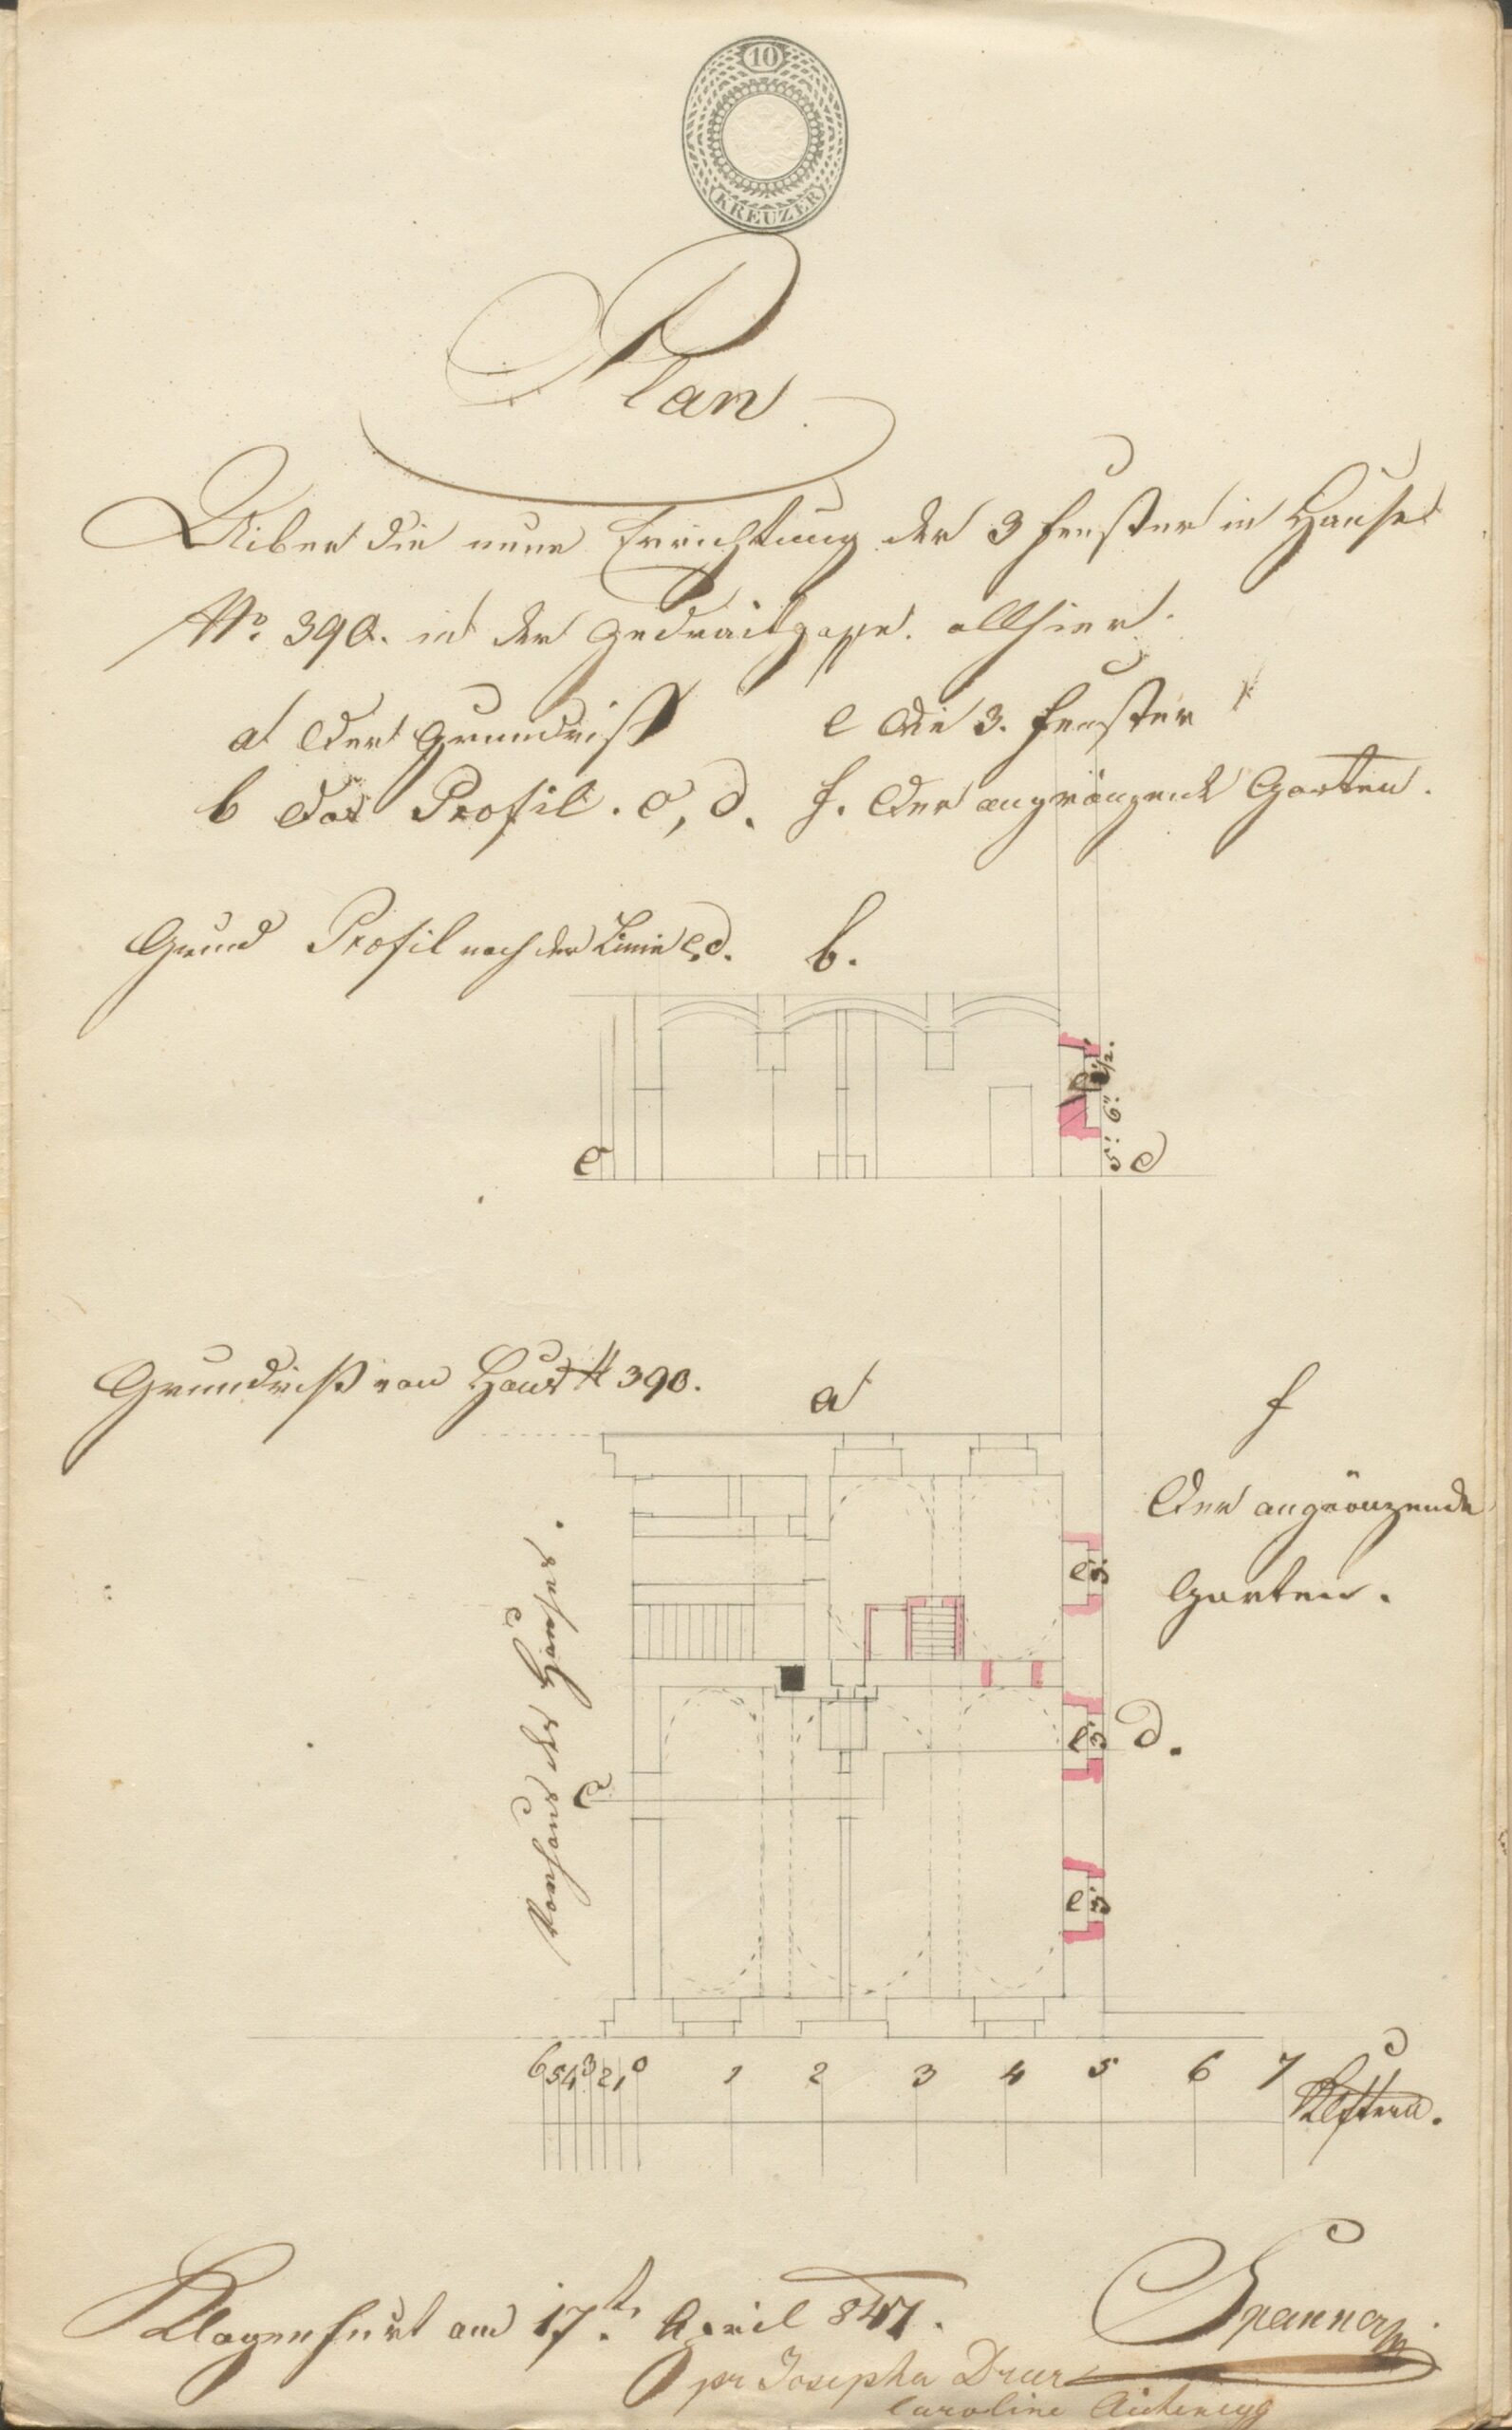 10
KREUZER
Plan
Uiber die neue Errichtung der 3 Fenster in Hause
No. 390. in der gasse. allhier.
a Der Grundriß
b Das Profil. c, d.
e Die 3. Fenster
f. Der angränzende Garten.
Grund Profil nach der Linie c, d.
b.
c
e
5': 6"
d
Grundriß von Haus N 390.
a
f
Der angränzende
Garten.
e 3'
e 3'
d.
e 3'
c
Vorhaus des Hauses.
6 5 4 3 2 1 0 1 2 3 4 5 6 7 Klftern.
Klagenfurt am 17t. April 847.
pr Josepha
Caroline